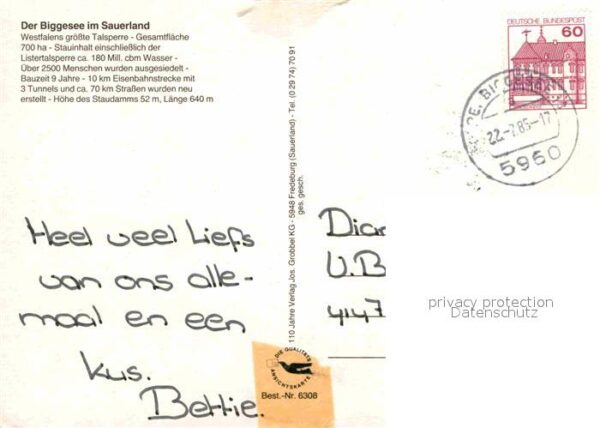 Der Biggesee im Sauerland
Westfalens größte Talsperre - Gesamtfläche
700 ha - Stauinhalt einschließlich der
Listertalsperre ca. 180 Mill. cbm Wasser -
Über 2500 Menschen wurden ausgesiedelt -
Bauzeit 9 Jahre - 10 km Eisenbahnstrecke mit
3 Tunnels und ca. 70 km Straßen wurden neu
erstellt - Höhe des Staudamms 52 m, Länge 640 m
Heel veel liefs
van ons alle-
maal en een
kus.
Bettie.
110 Jahre Verlag Jos. Grobbel KG - 5948 Fredeburg (Sauerland) - Tel. (0 29 74) 70 91
ges. gesch.
DIE QUALITÄTS
ANSICHTSKARTE
Best.-Nr. 6308
DEUTSCHE BUNDESPOST
60
22.-7.85-17
5960
U.B
4147
privacy protection
Datenschutz